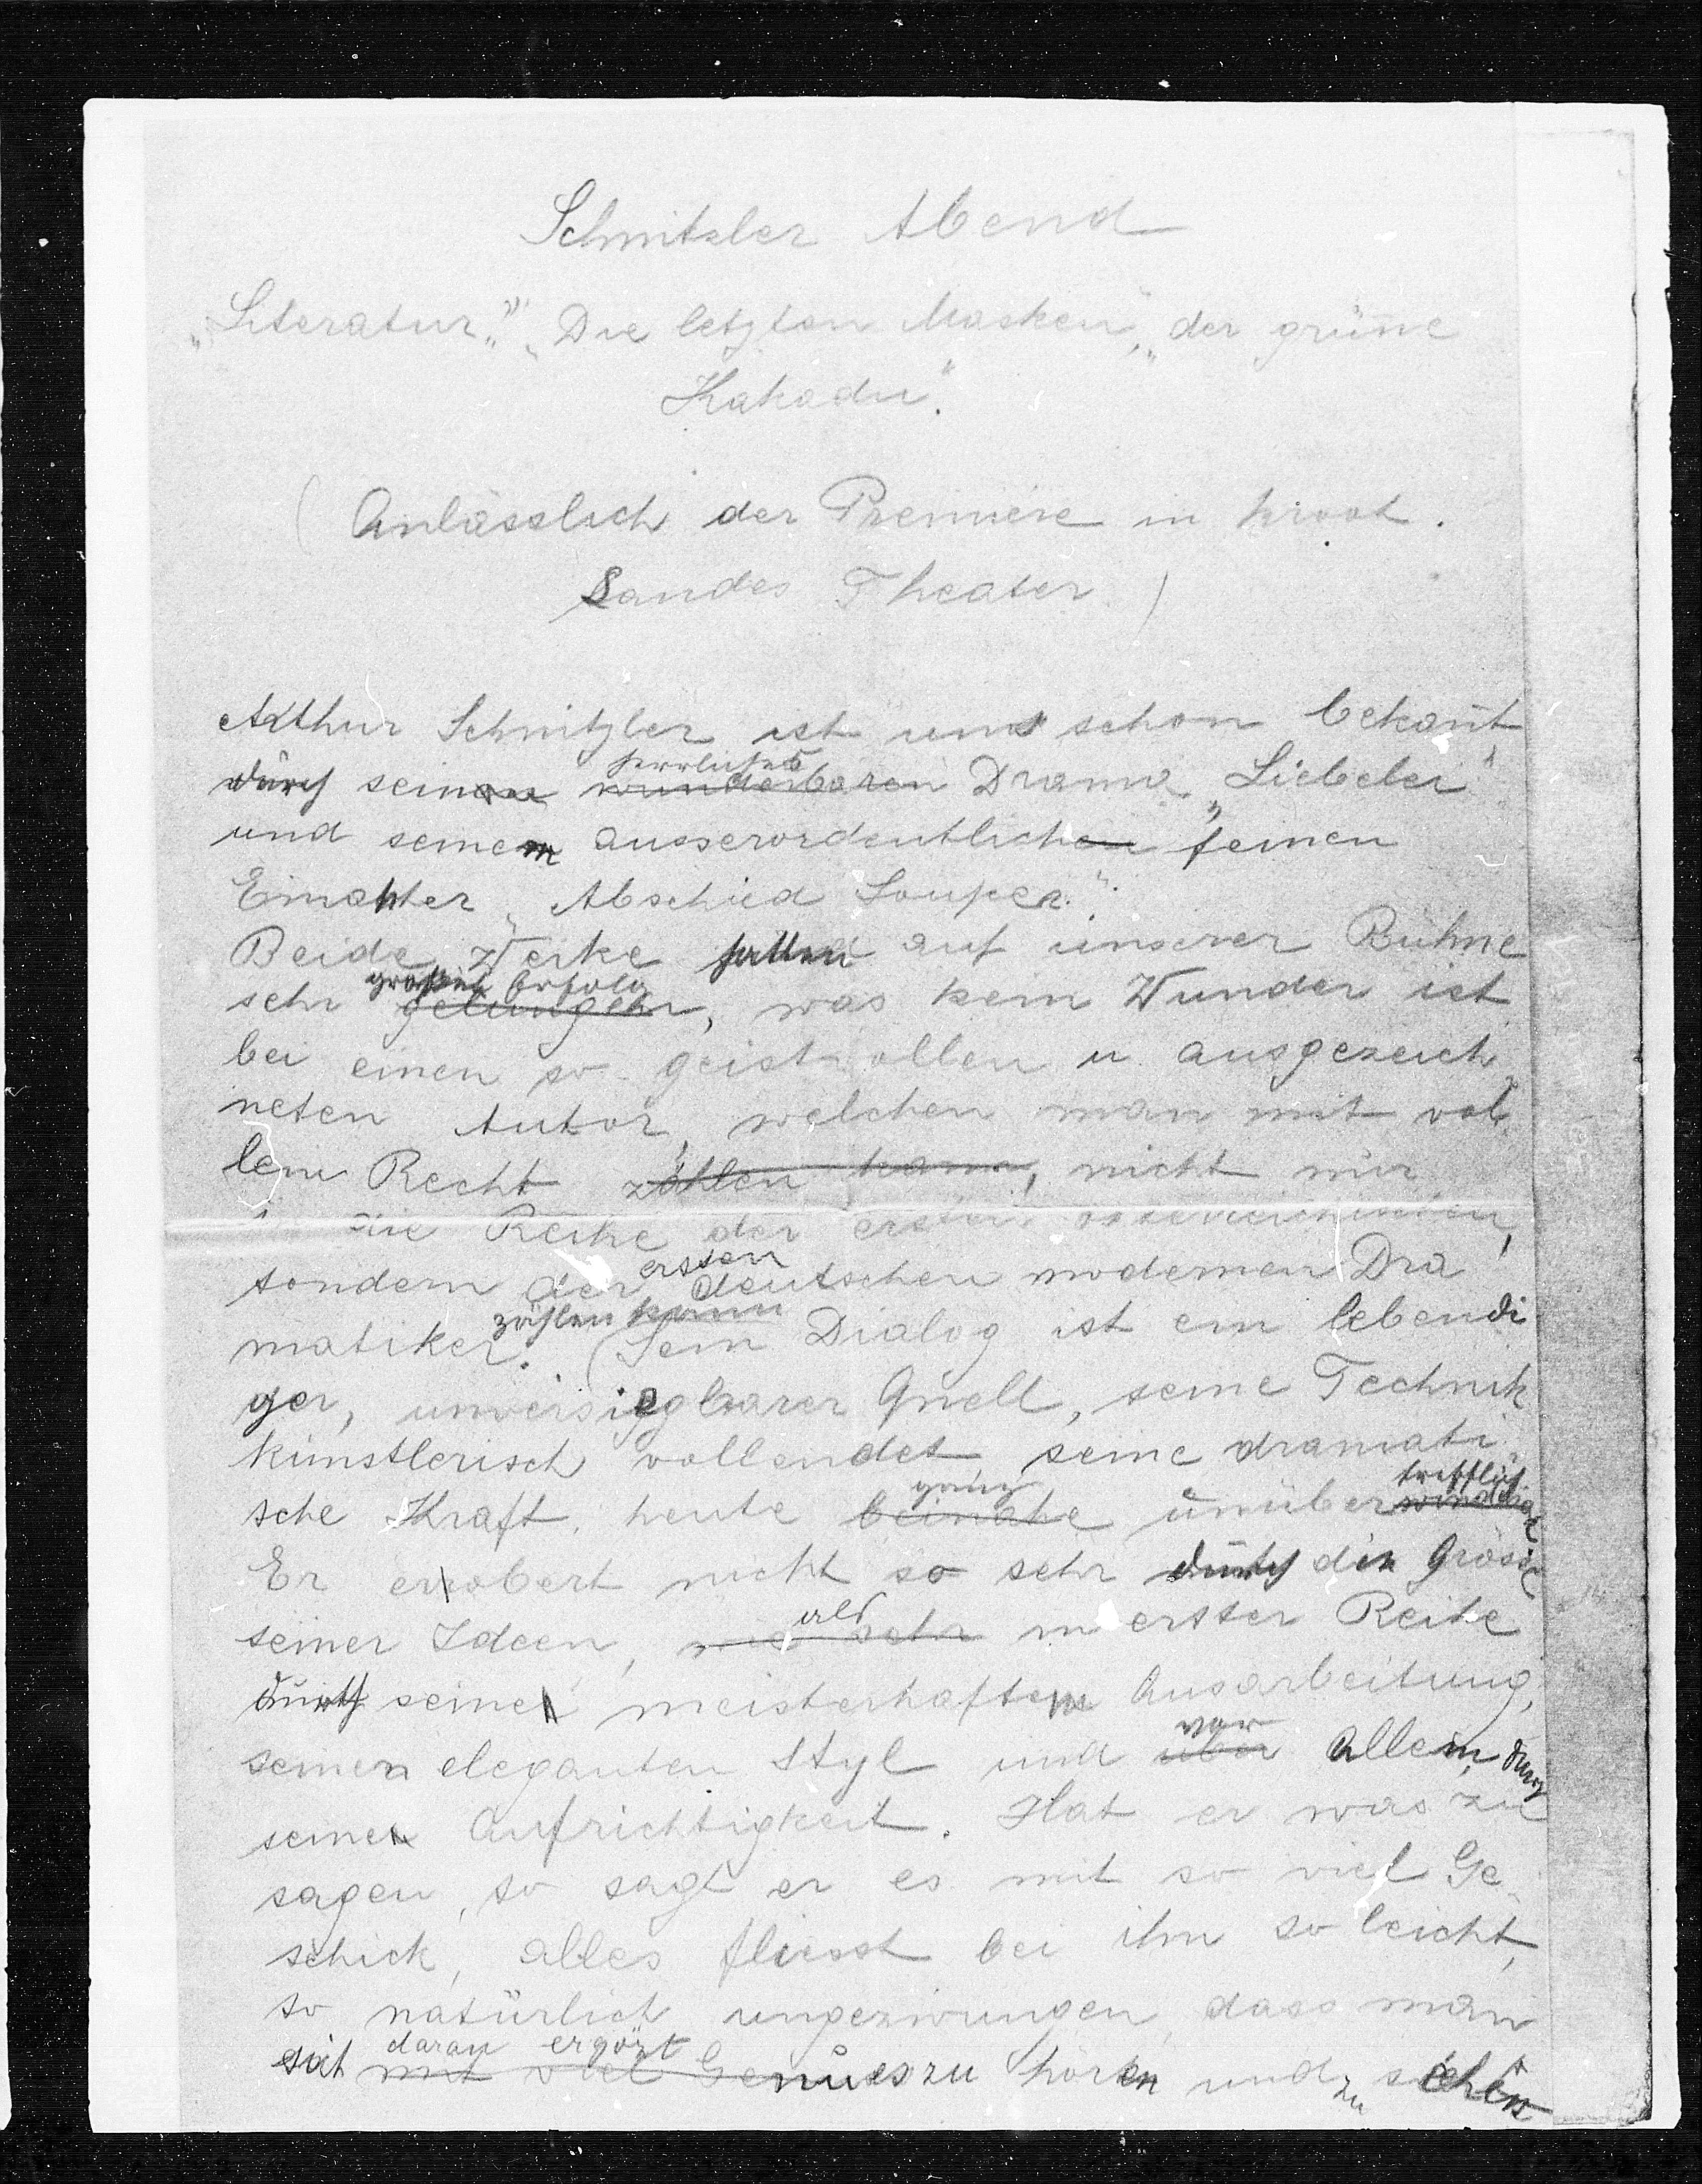 Schnitzler Abend
„Literatur." „Die letzten Masken", „der grüne
Kakadu".
(Anlässlich der Première in kroat.
Landes Theater)
Arthur Schnitzler ist uns schon bekannt
herrliches
durch sein wunderbaren Drama „Liebelei"
und seinem ausserordentlichen feinen
Einakter „Abschied Souper."
Beide Werke hatten auf unserer Bühne
großen Erfolg
sehr gelungen, was kein Wunder ist
bei einen so geistvollen u ausgezeich
neten Autor, welchen man mit vol
lem Recht zählen kann, nicht nur
in die Reihe der ersten österreichischen,
ersten
sondern der deutschen modernen Dra
zählen kann
matiker. (Sein Dialog ist ein lebendi
ger, unversiegbarer Quell, seine Technik
künstlerisch vollendet seine dramati
ganz trefflich
sche Kraft, heute beinahe unüberwindlich
Er erobert nicht so sehr durch die Grösse
als
seiner Ideen, wie sehr in erster Reihe
durch seine meisterhaften Ausarbeitung,
vor
seinen eleganten Styl und über allem durch
seine Aufrichtigkeit. Hat er was zu
sagen, so sagt er es mit so viel Ge
schick, alles fliesst bei ihm so leicht,
so natürlich ungezwungen, dass man
daran ergözt
sich mit viel Genuss zu hören und zu sehen